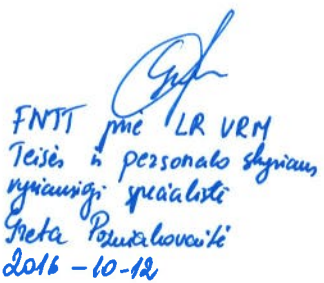 FNTT prie LR VRM
Teisės ir personalo skyriaus
vyriausioji specialistė
Greta
2016-10-12